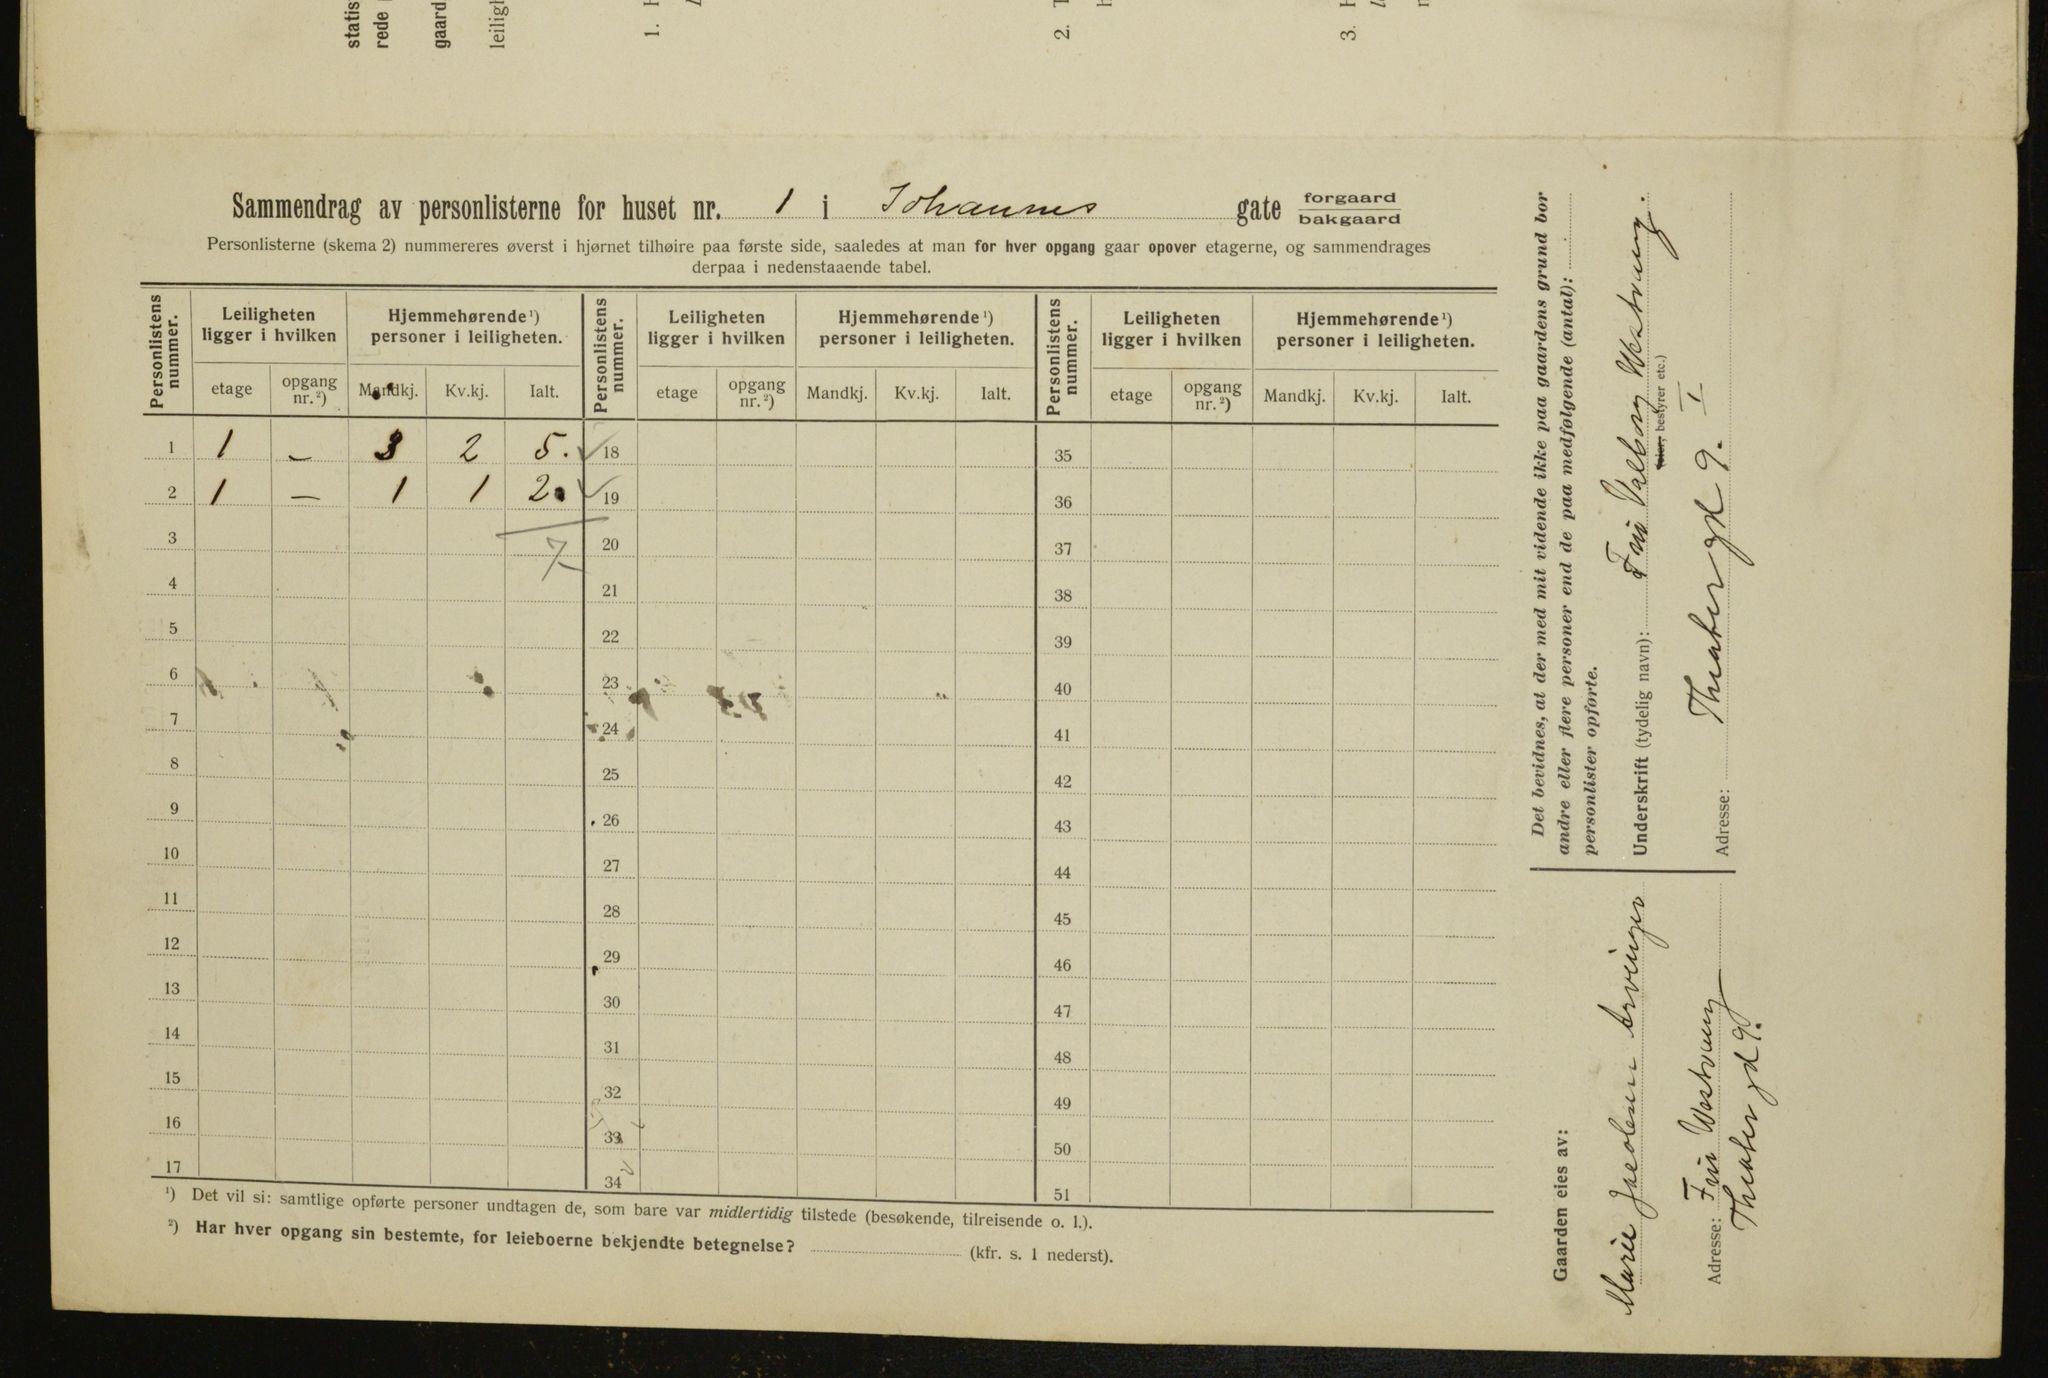 statis
rede
gaard
leiligh
1.
2.
3.
Sammendrag av personlisterne for huset nr. 1 i Johannes gate forgaard
bakgaard
Personlisterne (skema 2) nummereres øverst i hjørnet tilhøire paa første side, saaledes at man for hver opgang gaar opover etagerne, og sammendrages
derpaa i nedenstaaende tabel.
Personlistens nummer. Leiligheten ligger i hvilken Hjemmehørende¹) personer i leiligheten. Personlistens nummer. Leiligheten ligger i hvilken Hjemmehørende¹) personer i leiligheten. Personlistens nummer. Leiligheten ligger i hvilken Hjemmehørende¹) personer i leiligheten.
etage opgang nr.²) Mandkj. Kv.kj. Ialt. etage opgang nr.²) Mandkj. Kv.kj. Ialt. etage opgang nr.²) Mandkj. Kv.kj. Ialt.
1 1 – 3 2 5. ✓ 18 35
2 1 – 1 1 2. ✓ 19 36
3 7 20 37
4 21 38
5 22 39
6 23 40
7 24 41
8 25 42
9 26 43
10 27 44
11 28 45
12 29 46
13 30 47
14 31 48
15 32 49
16 33 50
17 34 51
¹) Det vil si: samtlige opførte personer undtagen de, som bare var midlertidig tilstede (besøkende, tilreisende o. l.).
²) Har hver opgang sin bestemte, for leieboerne bekjendte betegnelse? (kfr. s. 1 nederst).
Det bevidnes, at der med mit vidende ikke paa gaardens grund bor
andre eller flere personer end de paa medfølgende (antal):
personlister opførte.
Underskrift (tydelig navn): Fru Valborg Westrung.
(eier, bestyrer etc.)
Adresse: Theatergd 9. I
Gaarden eies av:
Marie Jacobsens arvinger
Adresse: Fru Westrung
Theatergd 9.